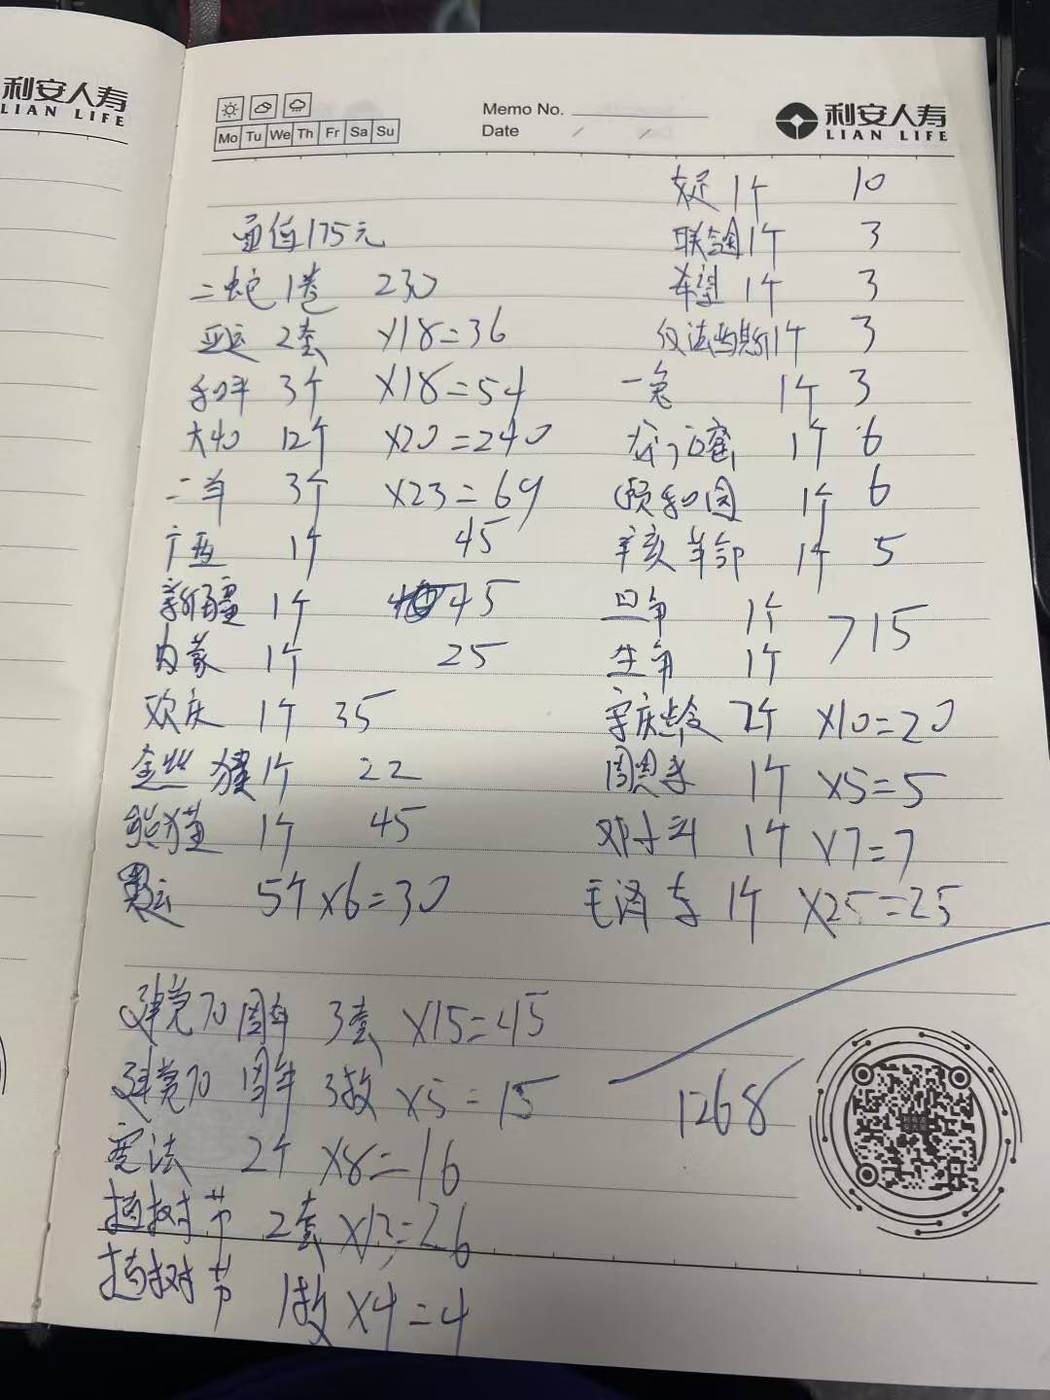 利安人寿
LIAN LIFE
Memo No.
Date / /
Mo Tu We Th Fr Sa Su
利安人寿
LIAN LIFE
面值175元
二蛇 1卷 230
亚运 2套 ×18=36
和平 3个 ×18=54
大40 12个 ×20=240
二羊 3个 ×23=69
广西 1个 45
新疆 1个 45
内蒙 1个 25
欢庆 1个 35
金丝猴 1个 22
熊猫 1个 45
奥运 5个×6=30
建党70周年 3套 ×15=45
建党70周年 3枚 ×5=15
宪法 2个 ×8=16
植树节 2套 ×13=26
植树节 1枚 ×4=4
女足 1个 10
联合国 1个 3
希望 1个 3
1个 3
一兔 1个 3
1个 6
颐和园 1个 6
辛亥革命 1个 5
1个
1个
715
宋庆龄 2个 ×10=20
周恩来 1个 ×5=5
邓小平 1个 ×7=7
毛泽东 1个 ×25=25
1268